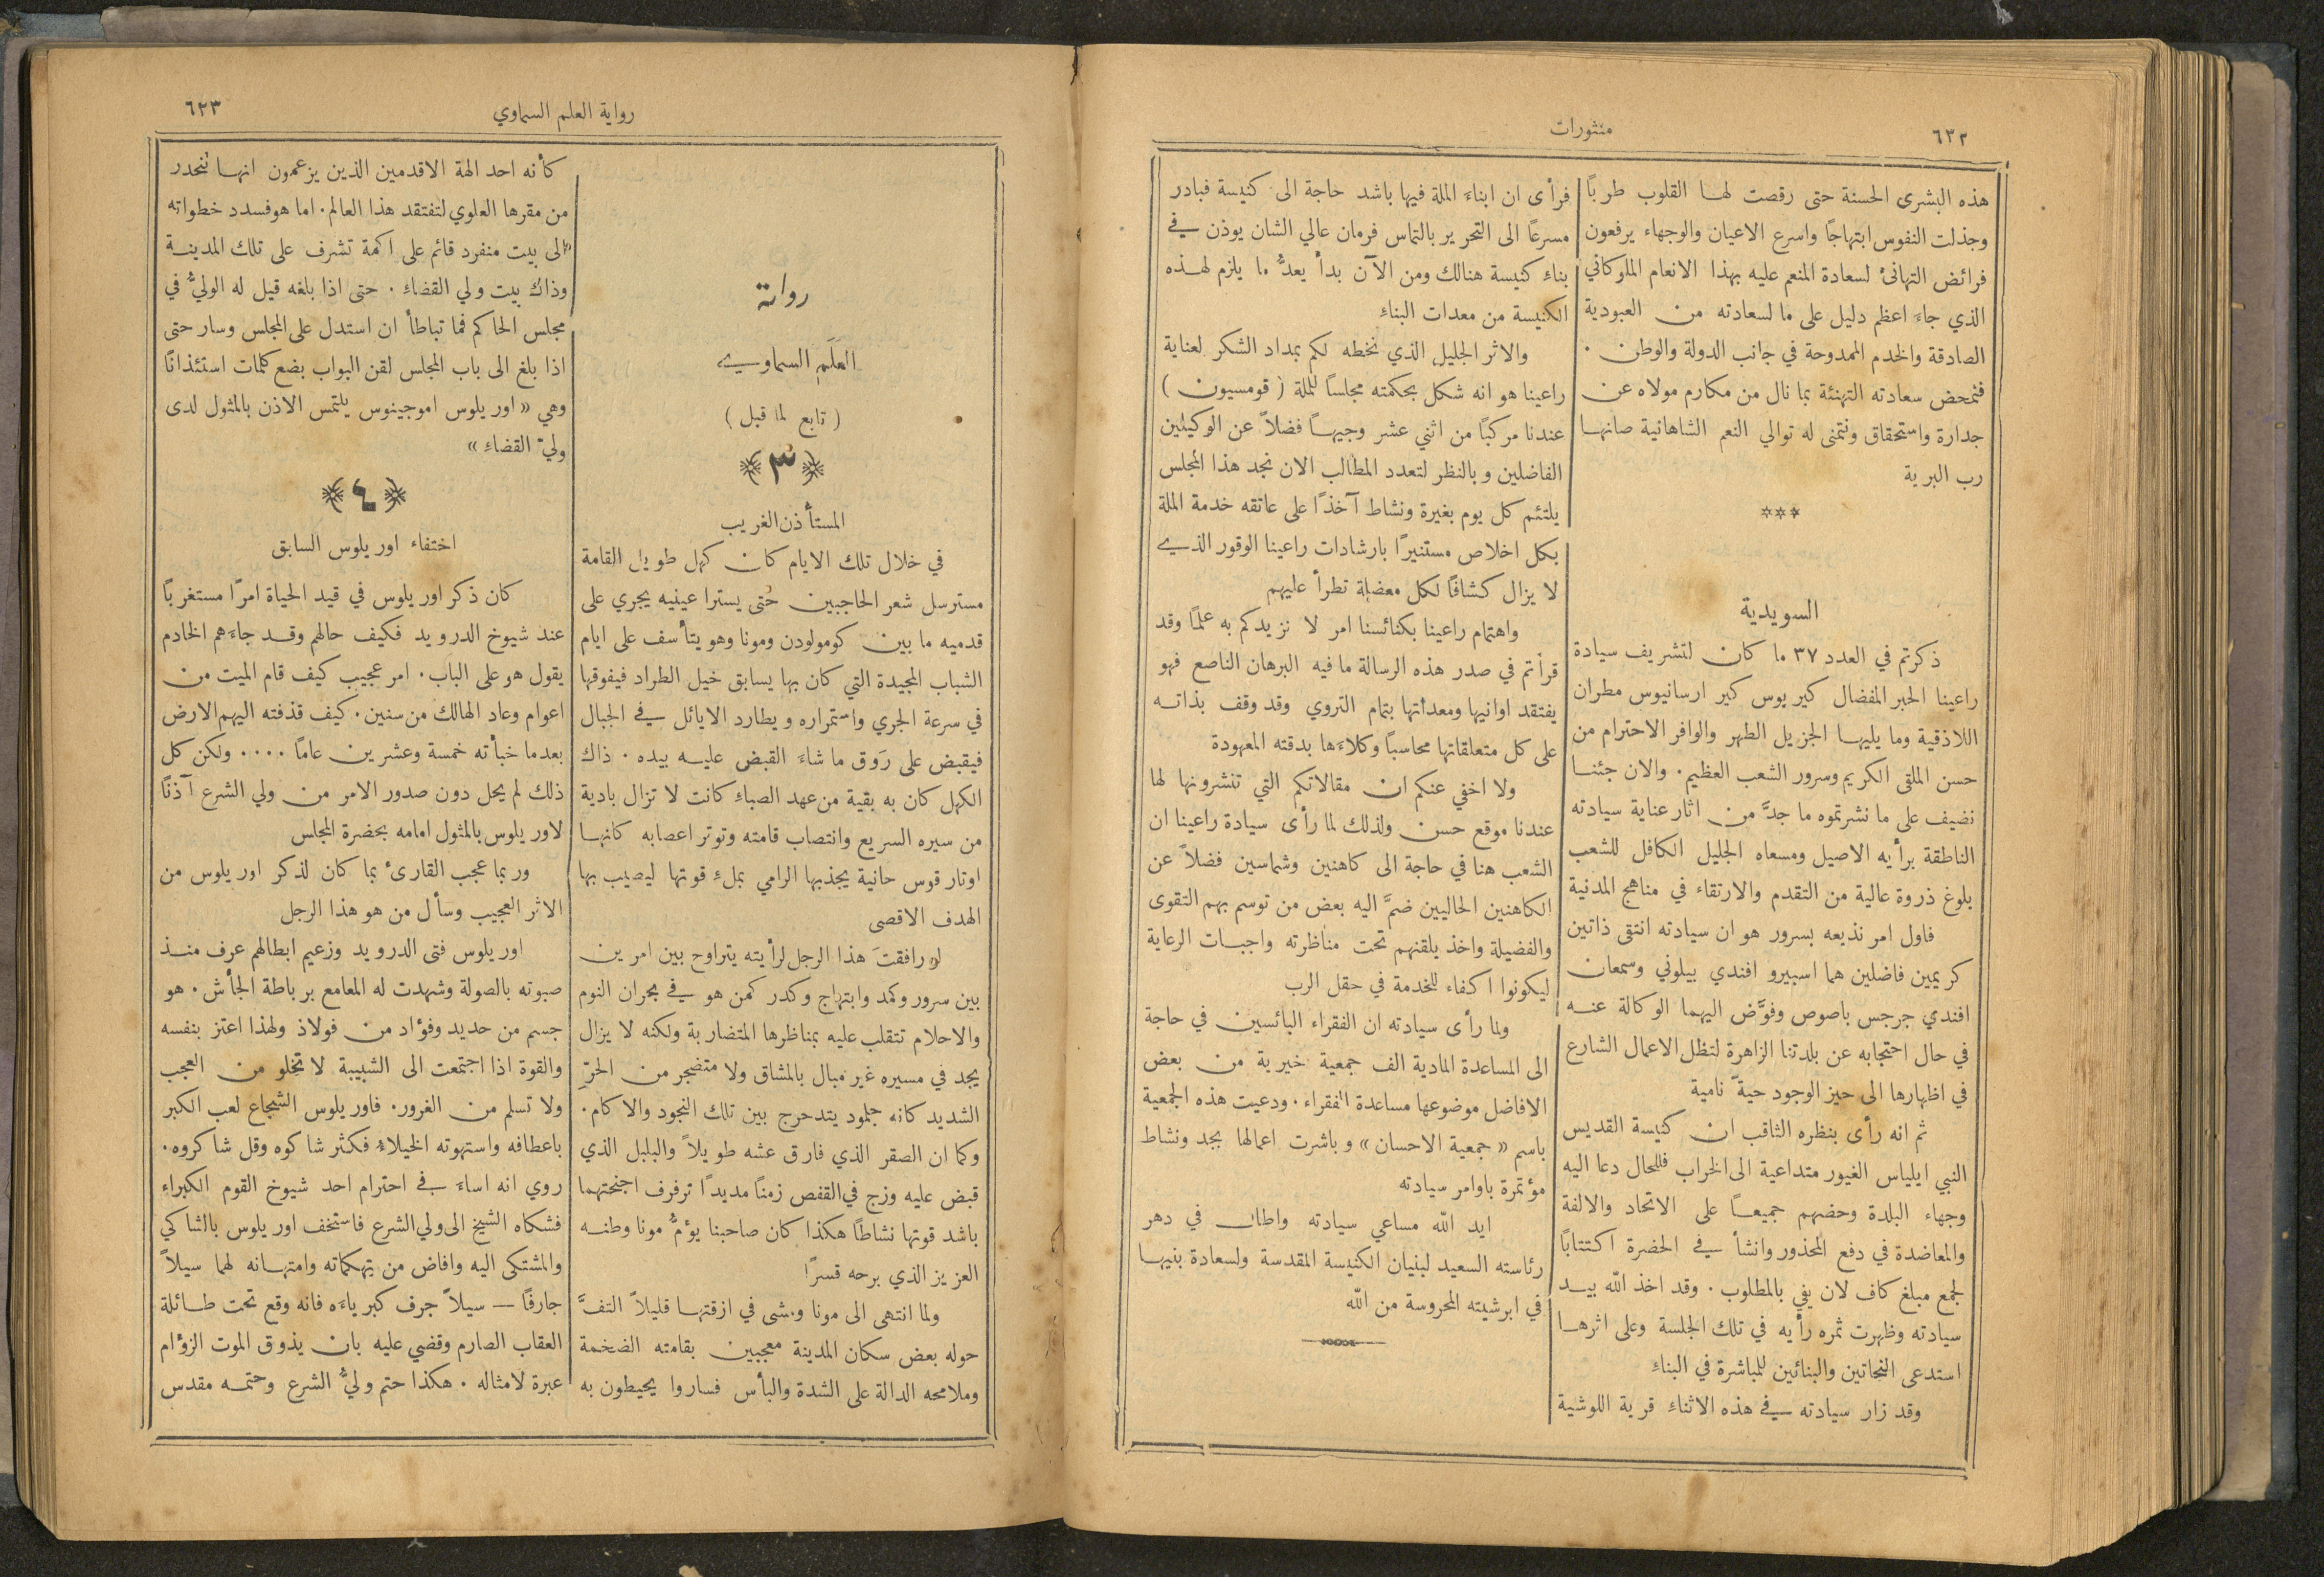 ٦٢٢
منثورات
هذه البشرى الحسنة حتى رقصت لها القلوب طربًا
وجذلت النفوس ابتهاجًا واسرع الاعيان والوجهاء يرفعون
فرائض التهانئ لسعادة المنعم عليه بهذا الانعام الملوكاني
الذي جاءَ اعظم دليل على ما لسعادته من العبودية
الصادقة والخدم الممدوحة في جانب الدولة والوطن .
فنمحض سعادته التهنئة بما نال من مكارم مولاه عن
جدارة واستحقاق ونتمنى له توالي النعم الشاهانية صانها
رب البرية
***
السويدية
ذكرتم في العدد ٣٧ ما كان لتشريف سيادة
راعينا الحبر المفضال كيريوس كير ارسانيوس مطران
اللاذقية وما يليها الجزيل الطهر والوافر الاحترام من
حسن الملتقى الكريم وسرور الشعب العظيم . والان جئنا
نضيف على ما نشرتموه ما جدَّ من اثار عناية سيادته
الناطقة برأيه الاصيل ومسعاه الجليل الكافل للشعب
بلوغ ذروة عالية من التقدم والارتقاء في مناهج المدنية
فاول امر نذيعه بسرور هو ان سيادته انتقى ذاتين
كريمين فاضلين هما اسبيرو افندي بيلوني وسمعان
افندي جرجس باصوص وفوَّض اليهما الوكالة عنه
في حال احتجابه عن بلدتنا الزاهرة لتظل الاعمال الشارع
في اظهارها الى حيز الوجود حيةً نامية
ثم انه رأى بنظره الثاقب ان كنيسة القديس
النبي ايلياس الغيور متداعية الى الخراب فللحال دعا اليه
وجهاء البلدة وحضهم جميعًا على الاتحاد والالفة
والمعاضدة في دفع المحذور وانشأ في الحضرة اكتتابًا
لجمع مبلغ كاف لان يفي بالمطلوب . وقد اخذ الله بيد
سيادته وظهرت ثمره رأيه في تلك الجلسة وعلى اثرها
استدعى النحاتين والبنائين للمباشرة في البناءِ
وقد زار سيادته في هذه الاثناءِ قرية اللوشية
فرأى ان ابناءَ الملة فيها باشد حاجة الى كنيسة فبادر
مسرعًا الى التحرير بالتماس فرمان عالي الشان يوذن في
بناءِ كنيسة هنالك ومن الآن بدأ يعدُّ ما يلزم لهذه
الكنيسة من معدات البناءِ
والاثر الجليل الذي نخطه لكم بمداد الشكر لعناية
راعينا هو انه شكل بحكمته مجلسًا للملة ( قومسيون )
عندنا مركبًا من اثني عشر وجيهًا فضلاً عن الوكيلين
الفاضلين وبالنظر لتعدد المطالب الان نجد هذا المجلس
يلتئم كل يوم بغيرة ونشاط آخذًا على عاتقه خدمة الملة
بكل اخلاص مستنيرًا بارشادات راعينا الوقور الذي
لا يزال كشافًا لكل معضلة تطرأ عليهم
واهتمام راعينا بكنائسنا امر لا نزيدكم به علمًا وقد
قرأتم في صدر هذه الرسالة ما فيه البرهان الناصع فهو
يفتقد اوانيها ومعداتها بتمام التروي وقد وقف بذاته
على كل متعلقاتها محاسبًا وكلاءَها بدقته المعهودة
ولا اخفي عنكم ان مقالاتكم التي تنشرونها لها
عندنا موقع حسن ولذلك لما رأى سيادة راعينا ان
الشعب هنا في حاجة الى كاهنين وشماسين فضلاً عن
الكاهنين الحاليين ضمَّ اليه بعض من توسم بهم التقوى
والفضيلة واخذ يلقنهم تحت مناظرته واجبات الرعاية
ليكونوا اكفاء للخدمة في حقل الرب
ولما رأى سيادته ان الفقراء البائسين في حاجة
الى المساعدة المادية الف جمعية خيرية من بعض
الافاضل موضوعها مساعدة الفقراء . ودعيت هذه الجمعية
باسم « جمعية الاحسان » وباشرت اعمالها بجد ونشاط
مؤتمرة باوامر سيادته
ايد الله مساعي سيادته واطال في دهر
رئاسته السعيد لبنيان الكنيسة المقدسة ولسعادة بنيها
في ابرشيته المحروسة من الله
رواية العلم السماوي
٦٢٣
رواية
العَلَم السماوي
( تابع لما قبل )
﴿ ٣ ﴾
المستأذن الغريب
في خلال تلك الايام كان كهل طويل القامة
مسترسل شعر الحاجبين حُتى يسترا عينيه يجري على
قدميه ما بين كومولودن ومونا وهو يتأسف على ايام
الشباب المجيدة التي كان بها يسابق خيل الطراد فيفوقها
في سرعة الجري واستمراره ويطارد الايائل في الجبال
فيقبض على رَوق ما شاءَ القبض عليه بيده . ذاك
الكهل كان به بقية من عهد الصباءِ كانت لا تزال بادية
من سيره السريع وانتصاب قامته وتوتر اعصابه كانها
اوتار قوس حانية يجذبها الرامي بملءِ قوتها ليصيب بها
الهدف الاقصى
لو رافقتَ هذا الرجل لرأيته يتراوح بين امرين
بين سرور وكمد وابتهاج وكدر كمن هو في بحران النوم
والاحلام تتقلب عليه بمناظرها المتضاربة ولكنه لا يزال
يجد في مسيره غير مبال بالمشاق ولا متضجر من الحرّ
الشديد كانه جلمود يتدحرج بين تلك النجود والاكام .
وكما ان الصقر الذي فارق عشه طويلاً والبلبل الذي
قبض عليه وزج في القفص زمنًا مديدًا ترفرف اجنحتهما
باشد قوتها نشاطًا هكذا كان صاحبنا يؤمُّ مونا وطنه
العزيز الذي برحه قسرًا
ولما انتهى الى مونا ومشى في ازقتها قليلاً التفَّ
حوله بعض سكان المدينة معجبين بقامته الضخمة
وملامحه الدالة على الشدة والبأس فساروا يحيطون به
كأنه احد الهة الاقدمين الذين يزعمون انها تنحدر
من مقرها العلوي لتفتقد هذا العالم . اما هو فسدد خطواته
الى بيت منفرد قائم على اكمة تشرف على تلك المدينة
وذاك بيت ولي القضاءِ . حتى اذا بلغه قيل له الوليُّ في
مجلس الحاكم فما تباطأ ان استدل على المجلس وسار حتى
اذا بلغ الى باب المجلس لقن البواب بضع كلمات استئذانًا
وهي « اوريلوس اموجينوس يلتمس الاذن بالمثول لدى
وليّ القضاءِ »
﴿ ٤ ﴾
اختفاء اوريلوس السابق
كان ذكر اوريلوس في قيد الحياة امرًا مستغربًا
عند شيوخ الدرويد فكيف حالهم وقد جاءَهم الخادم
يقول هو على الباب . امر عجيب كيف قام الميت من
اعوام وعاد الهالك من سنين . كيف قذفته اليهم الارض
بعدما خبأته خمسة وعشرين عامًا .... ولكن كل
ذلك لم يحل دون صدور الامر من ولي الشرع آذنًا
لاوريلوس بالمثول امامه بحضرة المجلس
وربما عجب القارئ بما كان لذكر اوريلوس من
الاثر العجيب وسأل من هو هذا الرجل
اوريلوس فتى الدرويد وزعيم ابطالهم عرف منذ
صبوته بالصولة وشهدت له المعامع برباطة الجأش . هو
جسم من حديد وفؤاد من فولاذ ولهذا اعتز بنفسه
والقوة اذا اجتمعت الى الشبيبة لا تخلو من العجب
ولا تسلم من الغرور . فاوريلوس الشجاع لعب الكبر
باعطافه واستهوته الخيلاءُ فكثر شاكوه وقل شاكروه .
روي انه اساءَ في احترام احد شيوخ القوم الكبراءِ
فشكاه الشيخ الى ولي الشرع فاستخف اوريلوس بالشاكي
والمشتكى اليه وافاض من تهكماته وامتهانه لهما سيلاً
جارفًا — سيلاً جرف كبرياءَه فانه وقع تحت طائلة
العقاب الصارم وقضي عليه بان يذوق الموت الزؤام
عبرة لامثاله . هكذا حتم وليُّ الشرع وحتمه مقدس